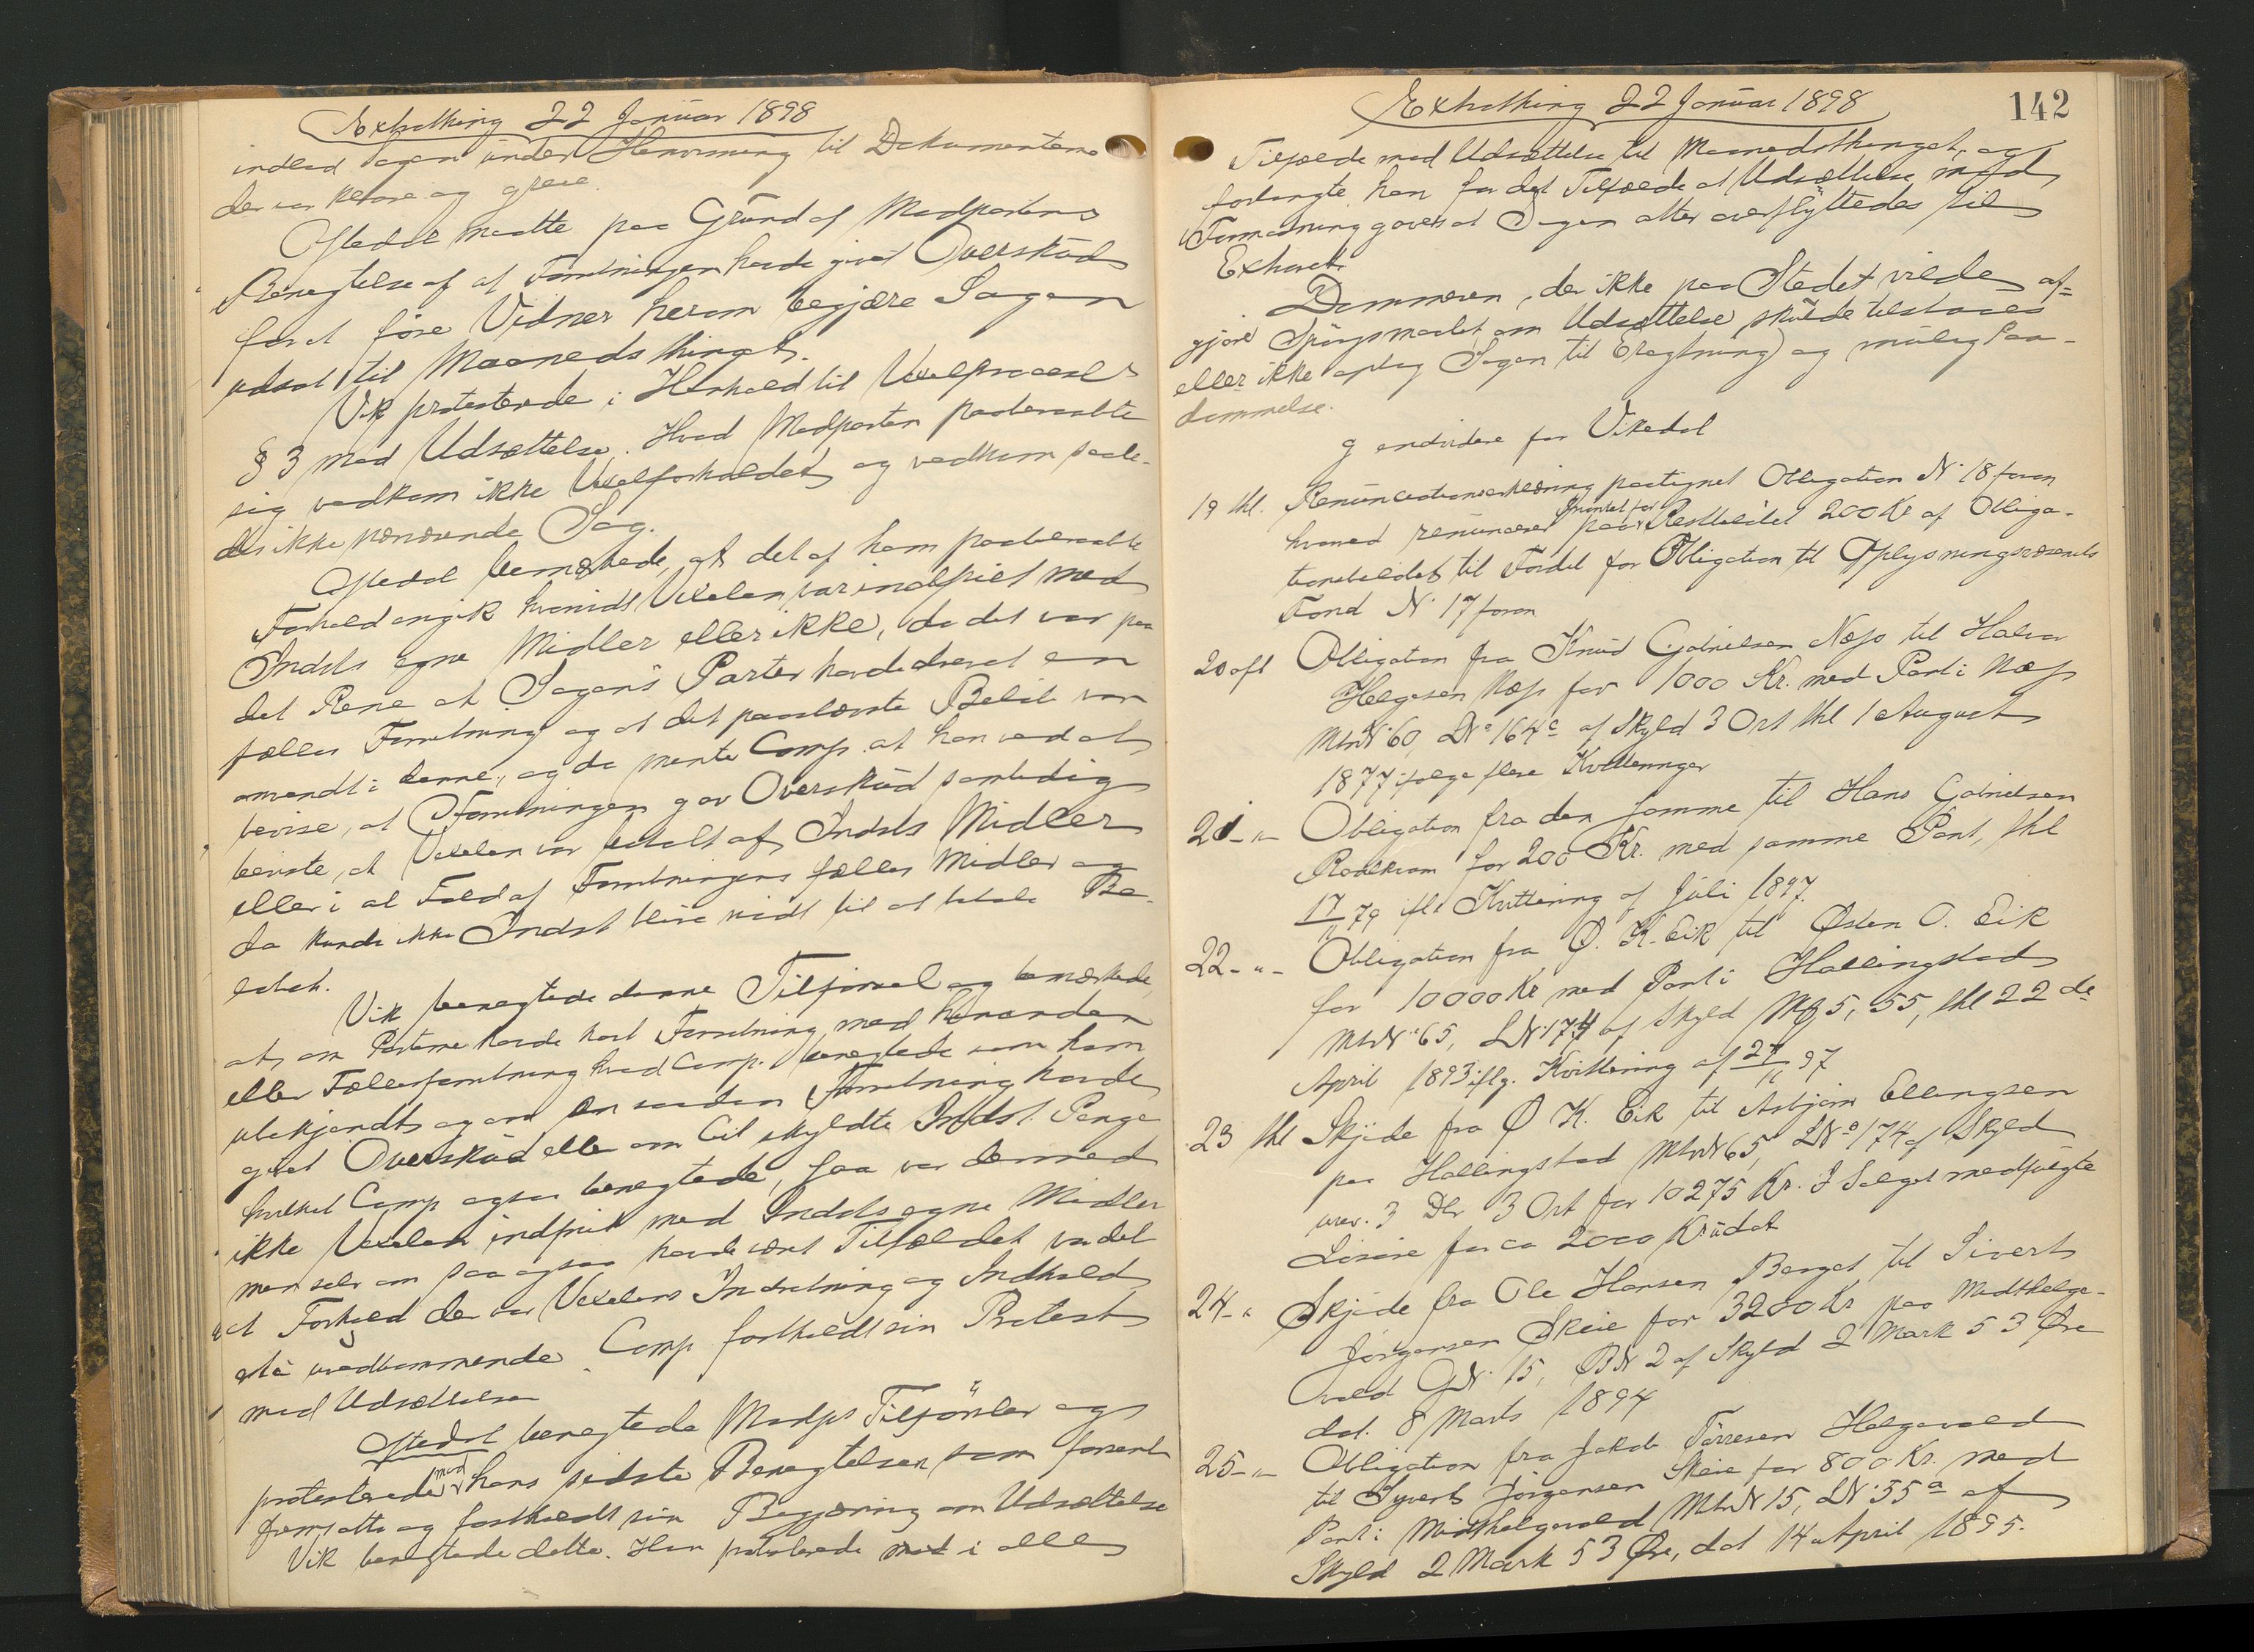 Extrathing 22 Januar 1898
indlod Sagen under Henvisning til Dokumenterne
der var klare og greie.
Oftedal maatte paa Grund af Modpartens
Benegtelse af at Forretningen havde givet Overskud
for at føre Vidner herom begjære Sagen
udsat til Maanedsthinget.
Vik protesterede i Henhold til Vexelprocesl
§ 3 mod Udsættelse. Hvad Modparten paaberaabte
sig vedkom ikke Vexelforholdet og vedkom saale-
des ikke nærværende Sag.
Oftedal bemærkede, at det af ham paaberaabte
Forhold angik hvorvidt Vexelen var indfriet med
Indsts egne Midler eller ikke, da det var paa
det Rene at Sagens Parter havde drevet en
fælles Forretning og at det paastævnte Beløb var
anvendt i denne, og da mente Comp. at han ved at
bevise, at Forretningen gav Overskud samtidig
beviste, at Vexelen var betalt af Indsts Midler
eller i al Fald af Forretningens fælles Midler og
da kunde ikke Indst blive nødt til at betale Be-
løbet.
Vik benegtede denne Tilførsel og bemærkede
at, om Parterne havde havt Forretning med hinanden
eller Fællesforretning hvad Comp. benegtede som ham
ubekjendt og om en saadan Forretning havde
givet Overskud eller om Cit skyldte Indst. Penge
hvilket Comp ogsaa benegtede, saa var dermed
ikke Vexelen indfriet med Indsts egne Midler
men selv om saa ogsaa havde vært Tilfældet var det
et Forhold der var Vexelens Indretning og Indhold
uvedkommende. Comp fastholdt sin Protest
mod Udsættelsen
Oftedal benegtede Modps Tilførsler og
protesterede mod hans sidste Benegtelser som forsent
fremsatte og fastholdt sin Begjæring om Udsættelse
Vik benegtede dette. Han protesterede mod i alle
Extrathing 22 Januar 1898
142
Tilfælde mod Udsættelse til Maanedsthinget, og
forlangte han for det Tilfælde at Udsættelse mod
Formodning gaves at Sagen atter overflyttedes til
Extraret.
Dommeren, der ikke paa Stedet vilde af-
gjøre Spørgsmaalet om Udsættelse skulde tilstaaes
eller ikke optog Sagen til Eragtning og mulig Paa-
dømmelse.
g endvidere for Vikedal
19 thl. Renunciationserklæring paategnet Obligation N. 18 foran
hvorved renunceres Prioritet for paa Restbeløbet 200 Kr af Obliga-
tionsbeløbet til Fordel for Obligation til Oplysningsvæsenets
Fond N. 17 foran
20 afl Obligation fra Knud Gabrielsen Næss til Halvor
Helgesen Næss for 1000 Kr. med Pant i Næss
MtrN. 60, LN. 164c af Skyld 3 Ort thl 1 August
1877 ifølge flere Kvitteringer
21 - " - Obligation fra den samme til Hans Gabrielsen
Roalkvam for 200 Kr. med samme Pant, thl
17/11 79 iflg Kvittering af Juli 1897.
22 - " - Obligation fra Ø. K. Eik til Østen O. Eik
for 10000 Kr med Pant i Hallingstad
MtrN. 65, LN. 174 af Skyld M 5,55, thl 22de
April 1893 iflg. Kvittering af 24/11 97
23 thl Skjøde fra Ø K. Eik til Asbjørn Ellingsen
paa Hallingstad MtrN 65, LNo 174 af Skyld
urev. 3 Dlr 3 Ort for 10275 Kr. I Salget medfulgte
Løsøre for ca 2000 Kr udat
24 - " Skjøde fra Ole Hansen Berget til Sivert
Jørgensen Skeie for 3200 Kr paa Midthelge-
vold GN. 15, BN 2 af Skyld 2 Mark 53 Øre
dat. 8 Marts 1894
25 - " - Obligation fra Jakob Tørresen Helgevold
til Syvert Jørgensen Skeie for 800 Kr. med
Pant i Midthelgevold MtrN 15, LN. 55a af
Skyld 2 Mark 53 Øre, dat 14 April 1895.